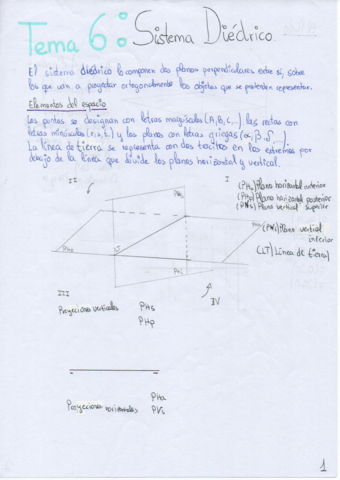 Tema 6: Sistema Diédrico.
El sistema diédrico lo componen dos planos perpendiculares entre sí, sobre
los que van a proyectar ortogonalmente los objetos que se pretenden representar.
Elementos del espacio
Los puntos se designan con letras mayúsculas (A,B,C,...) las rectas con
letras minúsculas (r,s,t,) y los planos con letras griegas (α,β,δ,...)
La línea de tierra se representa con dos trazitos en los extremos por
debajo de la línea que divide los planos horizontal y vertical.
II
I
(PHa) Plano horizontal anterior
(PHp) Plano horizontal posterior
(PVs) Plano vertical superior
(PVi) Plano vertical
inferior
(LT) Línea de tierra
LT
III
IV
Proyecciones verticales
PHp
Proyecciones horizontales
PHa
PVi
1